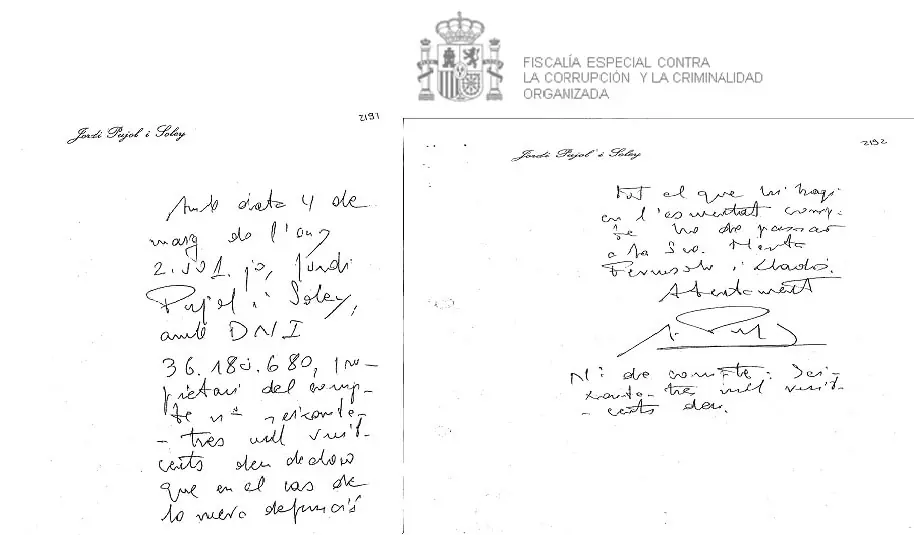 FISCALÍA ESPECIAL CONTRA
LA CORRUPCIÓN Y LA CRIMINALIDAD
ORGANIZADA
2191
Jordi Pujol i Soley
Amb data 4 de
març de l'any
2.001. jo, Jordi
Pujol i Soley,
amb DNI
36.180.680, pro-
pietari del comp-
te nº seixanta-
-tres mil vuit-
cents deu declaro
que en el cas de
la meva defunció
2192
Jordi Pujol i Soley
Tot el que hi hagi
en l'esmentat comp-
te ha de passar
a la Sra. Marta
Ferrusola i Lladós.
Atentament
Nº de compte: Sei-
xanta-tres mil vuit-
-cents deu.